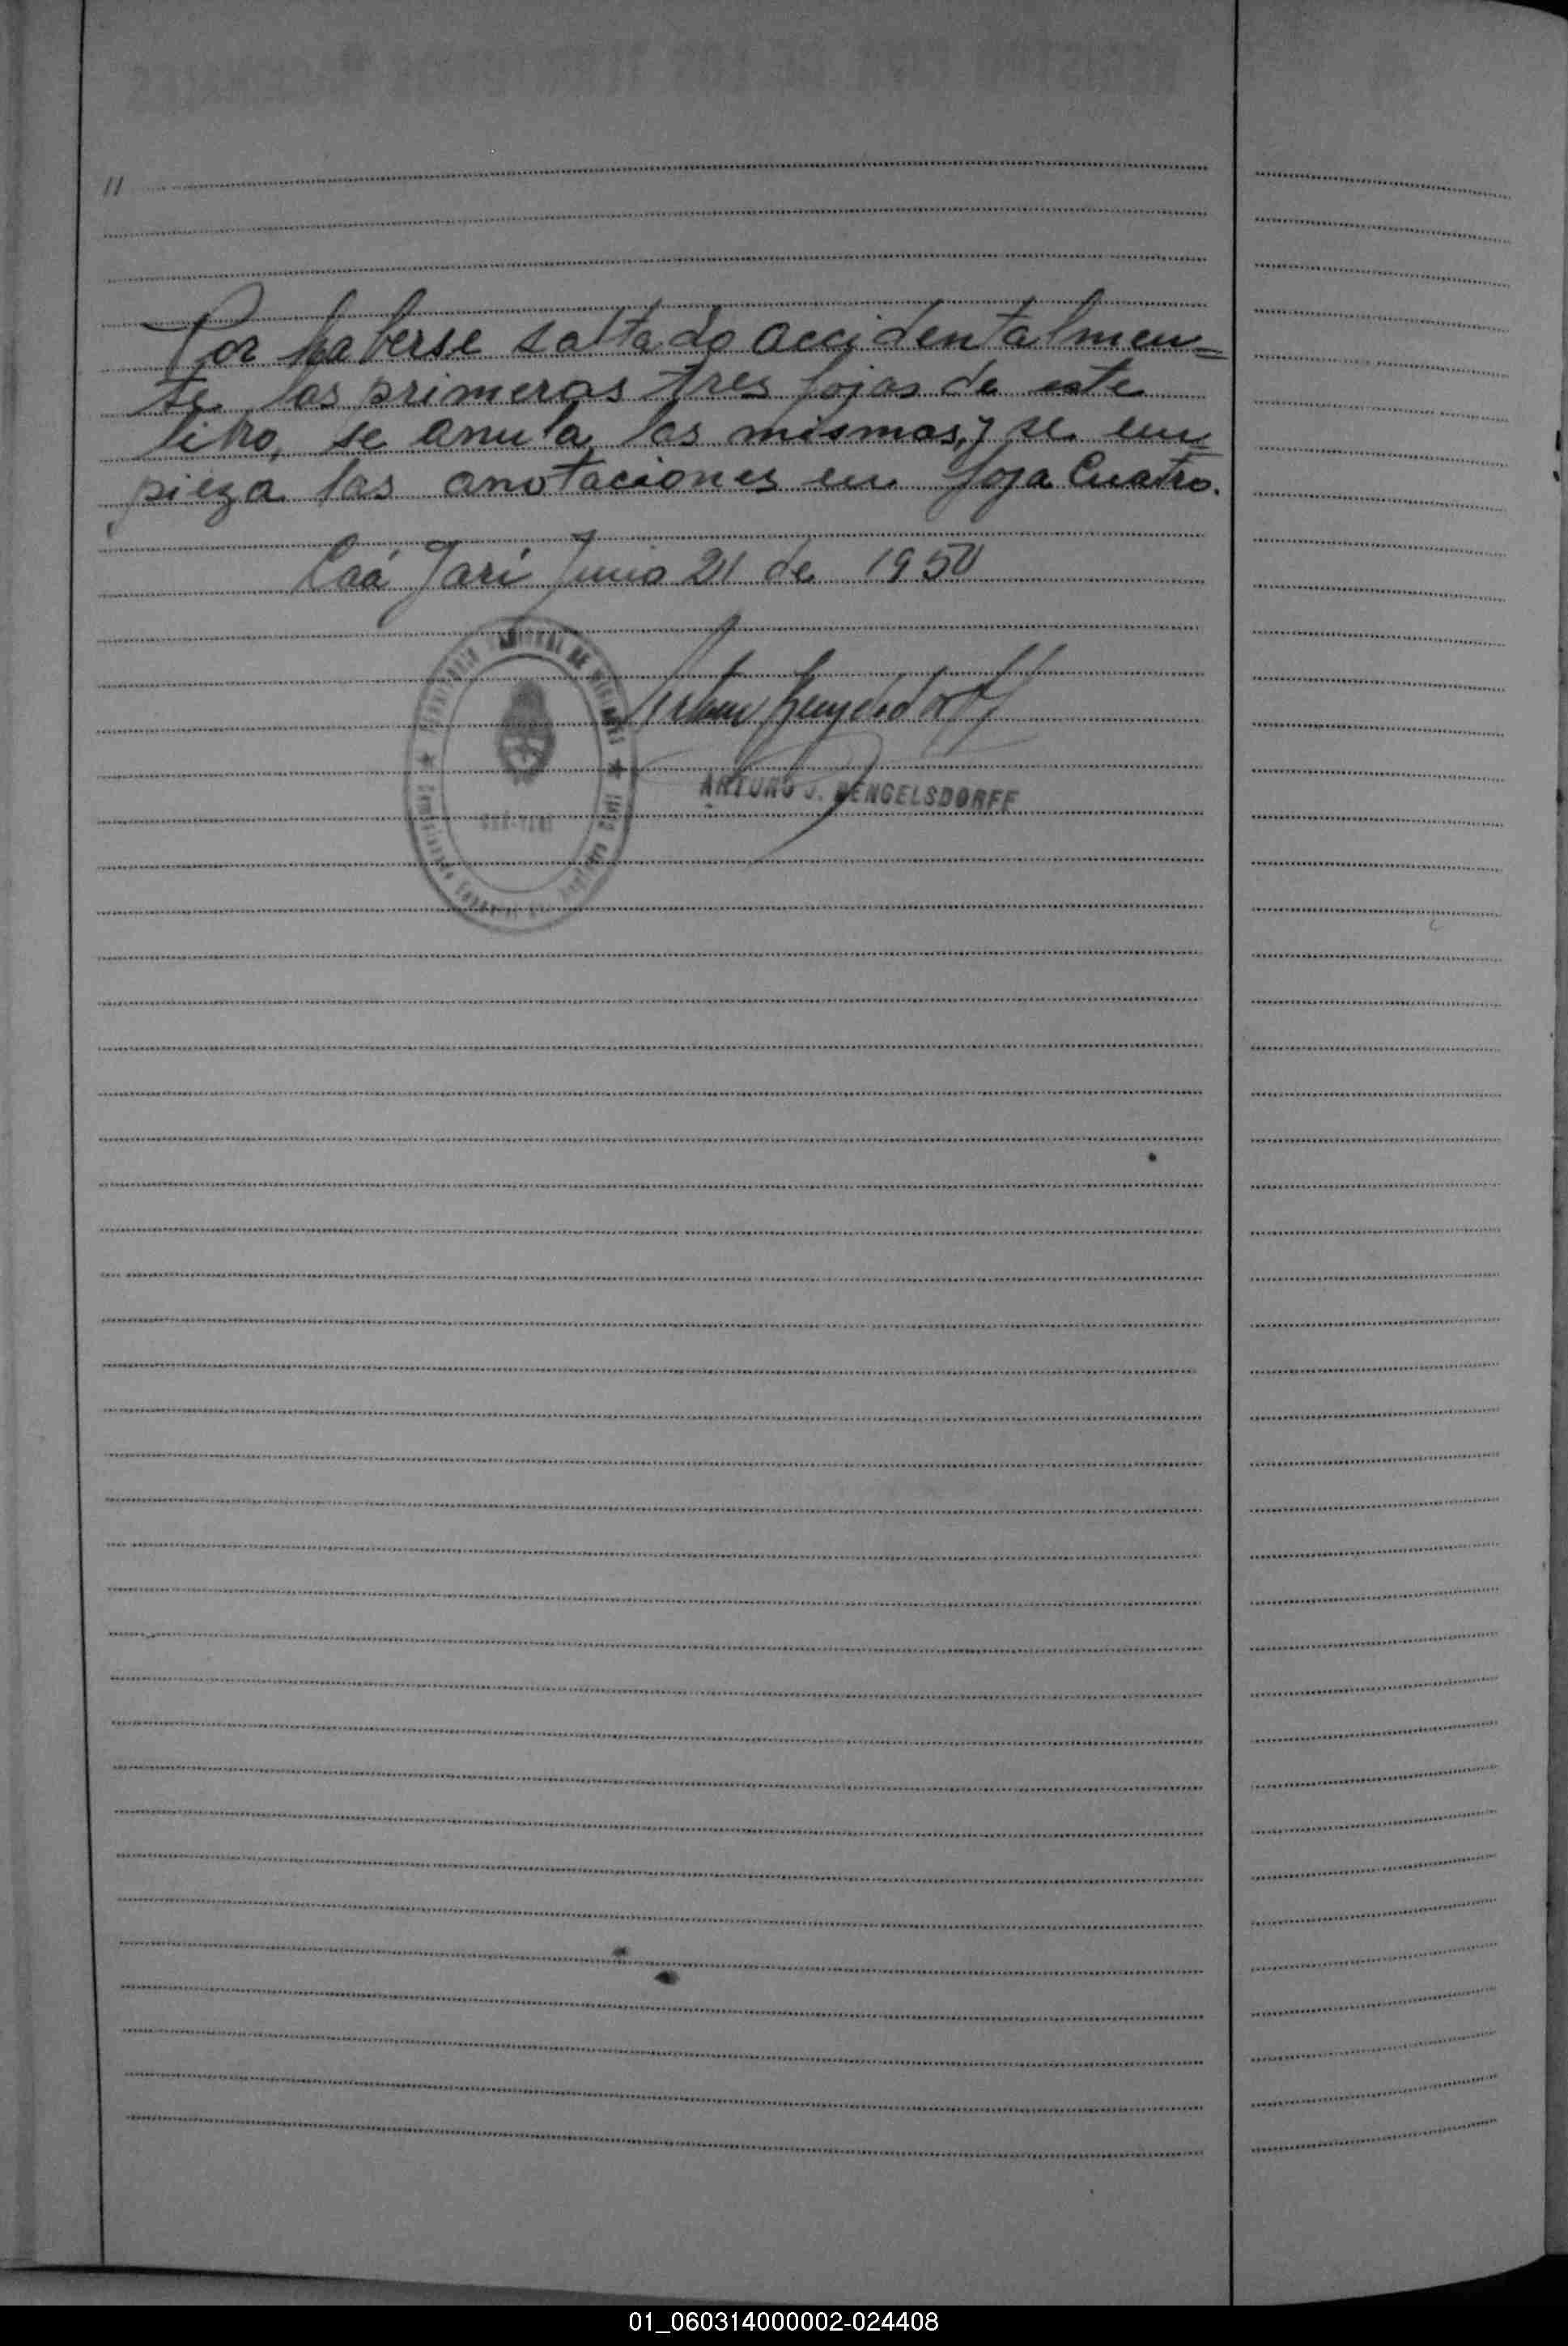 11
Por haberse saltado accidentalmen=
te las primeras tres fojas de este
libro, se anula las mismas, y se em=
pieza las anotaciones en foja Cuatro.
Caá Yarí Junio 21 de 1950
ARTURO J. RENGELSDORFF
CAÁ-YARI
01_060314000002-024408